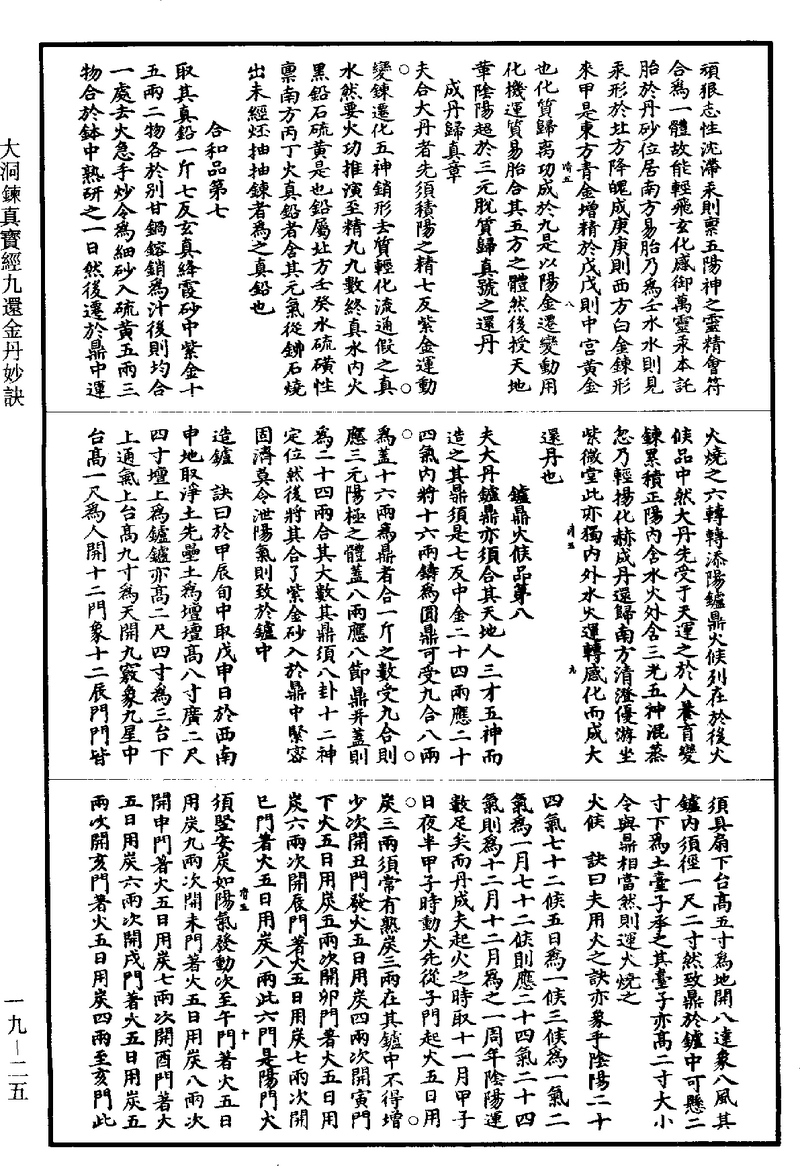 頑狠志性沈滯汞則禀五陽神之靈精會符
合為一體故能輕飛玄化感御萬靈汞本託
胎於丹砂位居南方易胎乃為壬水水則見
汞形於北方降魄成庚庚則西方白金鍊形
來甲是東方青金增精於戊戊則中宮黃金
也化質歸离功成於九是以陽金遷變動用
化機運質易胎合其五方之體然後授天地
華陰陽超於三元脫質歸真號之還丹
成丹歸真章
夫合大丹者先須積陽之精七反紫金運動
變鍊遷化五神銷形去質輕化流通假之真
水然要火功推演至精九九數終真水內火
黑鉛石硫黃是也鉛屬北方壬癸水硫磺性
禀南方丙丁火真鉛者含其元氣從鈰石燒
出未經坯抽抽鍊者為之真鉛也
合和品第七
取其真鉛一斤七反玄真絳霞砂中紫金十
五兩二物各於別甘鍋鎔銷為汁後則均合
一處去火急手炒令為細砂入硫黃五兩三
物合於鉢中熟研之一日然後遷於鼎中運
火燒之六轉轉添陽鑪鼎火候列在於後火
候品中然大丹先受于天運之於人養育變
鍊累積正陽內含水火外含三光五神混蒸
忽乃輕揚化赫成丹還歸南方清澄優游坐
紫微堂此亦獨內外水火運轉感化而成大
還丹也
鑪鼎火候品第八
夫大丹鑪鼎亦須合其天地人三才五神而
造之其鼎須是七反中金二十四兩應二十
四氣內將十六兩鑄為圓鼎可受九合八兩
為蓋十六兩為鼎者合一斤之數受九合則
應三元陽極之體蓋八兩應八節鼎并蓋則
為二十四兩合其大數其鼎須八卦十二神
定位然後將其合了紫金砂入於鼎中緊密
固濟莫令泄陽氣則致於鑪中
造鑪　訣曰於甲辰旬中取戊申日於西南
申地取淨土先壘土為壇壇高八寸廣二尺
四寸壇上為鑪鑪亦高二尺四寸為三台下
上通氣上台高九寸為天開九竅象九星中
台高一尺為人開十二門象十二辰門門皆
須具扇下台高五寸為地開八達象八風其
鑪內須徑一尺二寸然致鼎於鑪中可懸二
寸下為土臺子承之其臺子亦高二寸大小
令與鼎相當然則運火燒之
火候　訣曰夫用火之訣亦象乎陰陽二十
四氣七十二候五日為一候三候為一氣二
氣為一月七十二候則應二十四氣二十四
氣則為十二月十二月為之一周年陰陽運
數足矣而丹成夫起火之時取十一月甲子
日夜半甲子時動火先從子門起火五日用
炭三兩須常有熟炭三兩在其鑪中不得增
少次開丑門發火五日用炭四兩次開寅門
下火五日用炭五兩次開卯門著火五日用
炭六兩次開辰門著火五日用炭七兩次開
巳門著火五日用炭八兩此六門是陽門火
須堅安炭如陽氣發動次至午門著火五日
用炭九兩次開未門著火五日用炭八兩次
開申門著火五日用炭七兩次開酉門著火
五日用炭六兩次開戌門著火五日用炭五
兩次開亥門著火五日用炭四兩至亥門此
大洞鍊真寶經九還金丹妙訣
一九－二五